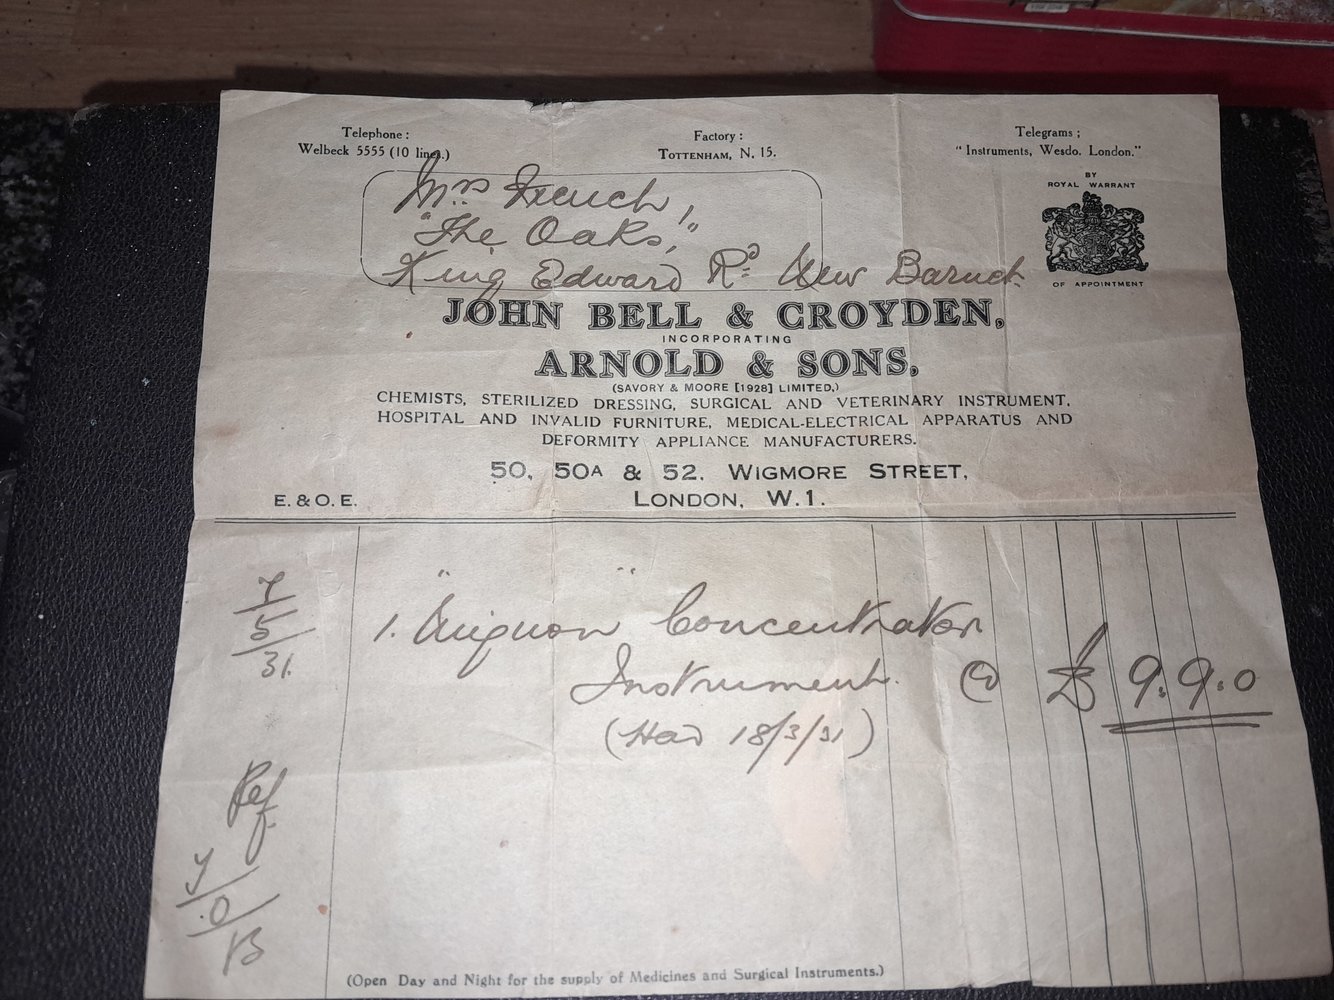 Telephone :
Welbeck 5555 (10 lines.)
Factory :
TOTTENHAM, N. 15.
Telegrams ;
"Instruments, Wesdo. London."
BY
ROYAL WARRANT
OF APPOINTMENT
Mrs French,
"The Oaks,"
King Edward Rd New Barnet.
JOHN BELL & CROYDEN,
INCORPORATING
ARNOLD & SONS.
(SAVORY & MOORE [1928] LIMITED.)
CHEMISTS, STERILIZED DRESSING, SURGICAL AND VETERINARY INSTRUMENT,
HOSPITAL AND INVALID FURNITURE, MEDICAL-ELECTRICAL APPARATUS AND
DEFORMITY APPLIANCE MANUFACTURERS.
50, 50A & 52. WIGMORE STREET,
E. & O. E.
LONDON, W.1.
7/5/31.
1. "Mignon" Concentrator
Instrument. @ £9.9.0
(Had 18/3/31)
Ref.
(Open Day and Night for the supply of Medicines and Surgical Instruments.)